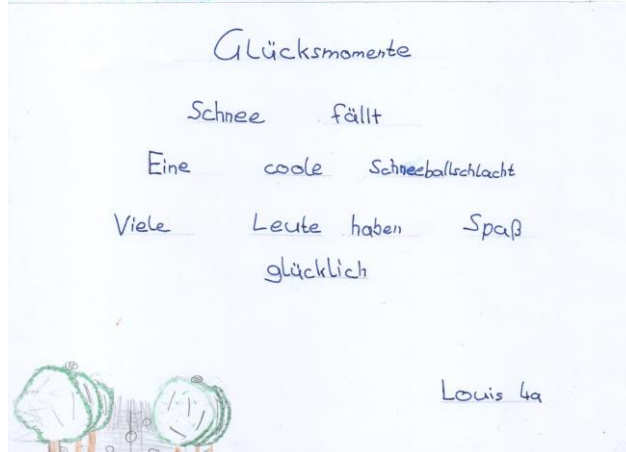 Glücksmomente
Schnee fällt
Eine coole Schneeballschlacht
Viele Leute haben Spaß
glücklich
Louis 4a